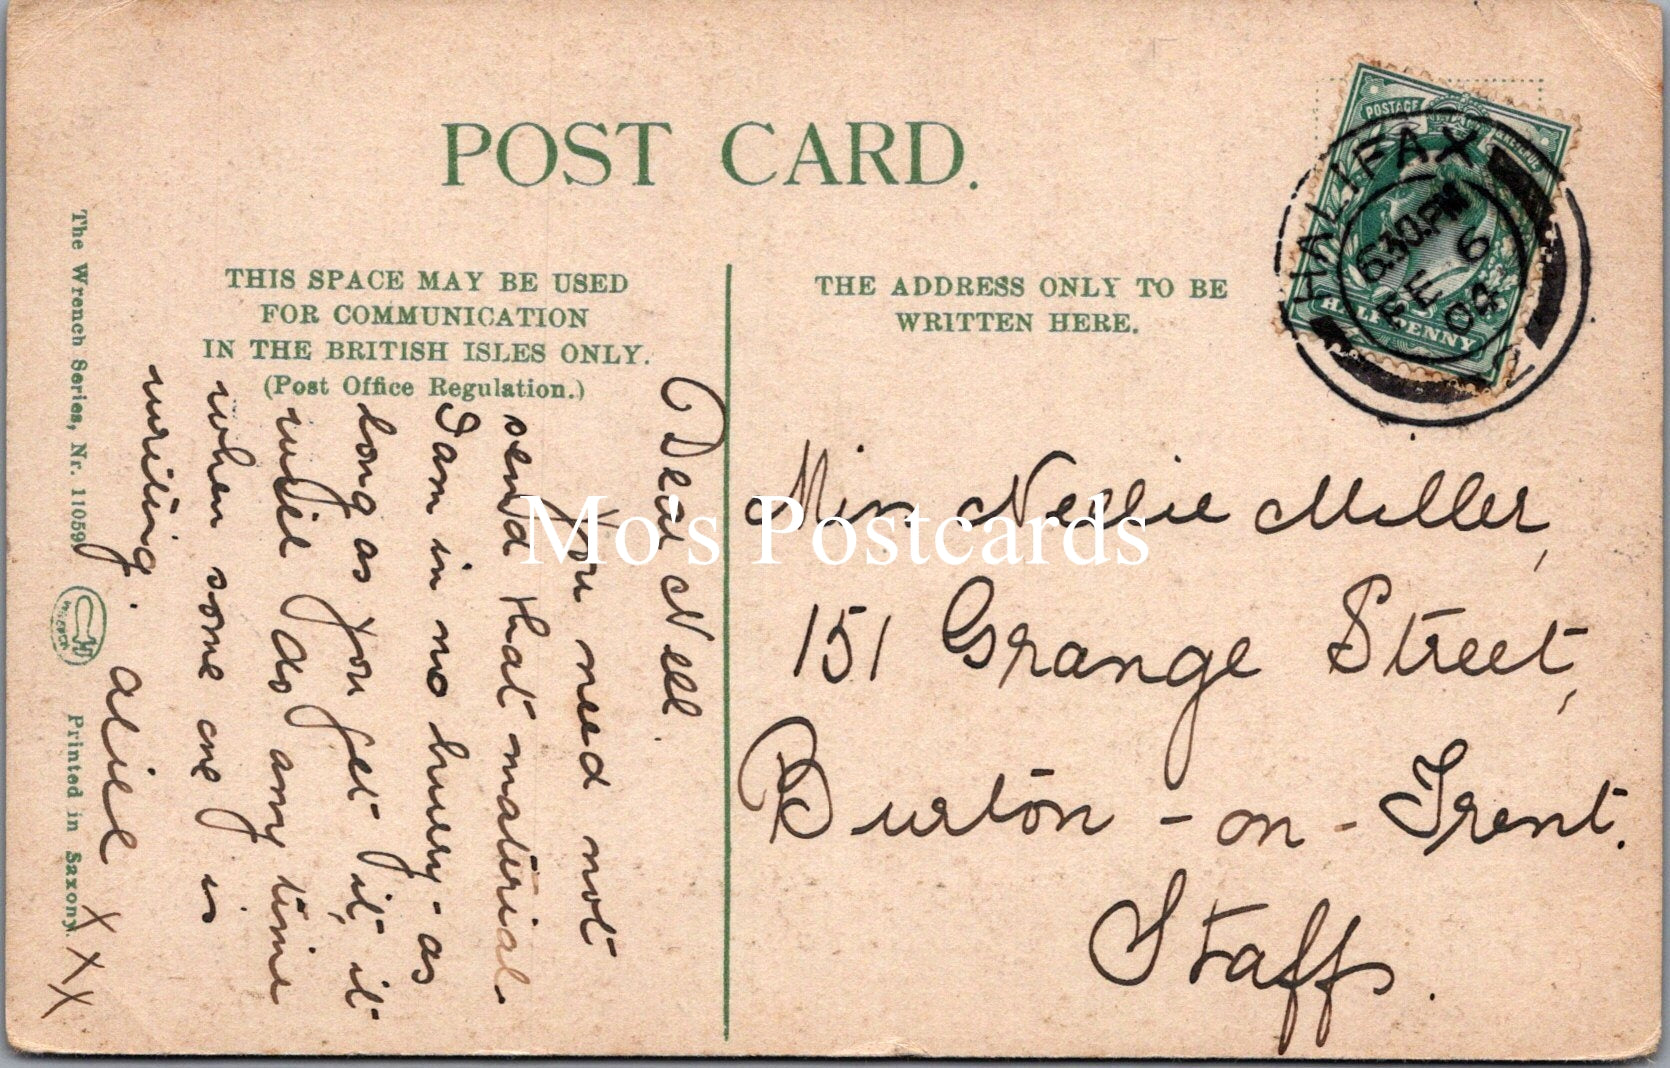 POST CARD.
THIS SPACE MAY BE USED
FOR COMMUNICATION
IN THE BRITISH ISLES ONLY.
(Post Office Regulation.)
THE ADDRESS ONLY TO BE
WRITTEN HERE.
POSTAGE
HALFPENNY
HALIFAX
6.30.PM
FE 6
04
Dear Nell.
You need not
send that material-
I am in no hurry - as
long as you get it, it
will do any time
when some one is
writing.
Alice
X X X
Miss Nellie Miller,
151 Grange Street,
Burton-on-Trent.
Staffs.
The Wrench Series, Nr. 11059
Printed in Saxony.
Mo's Postcards